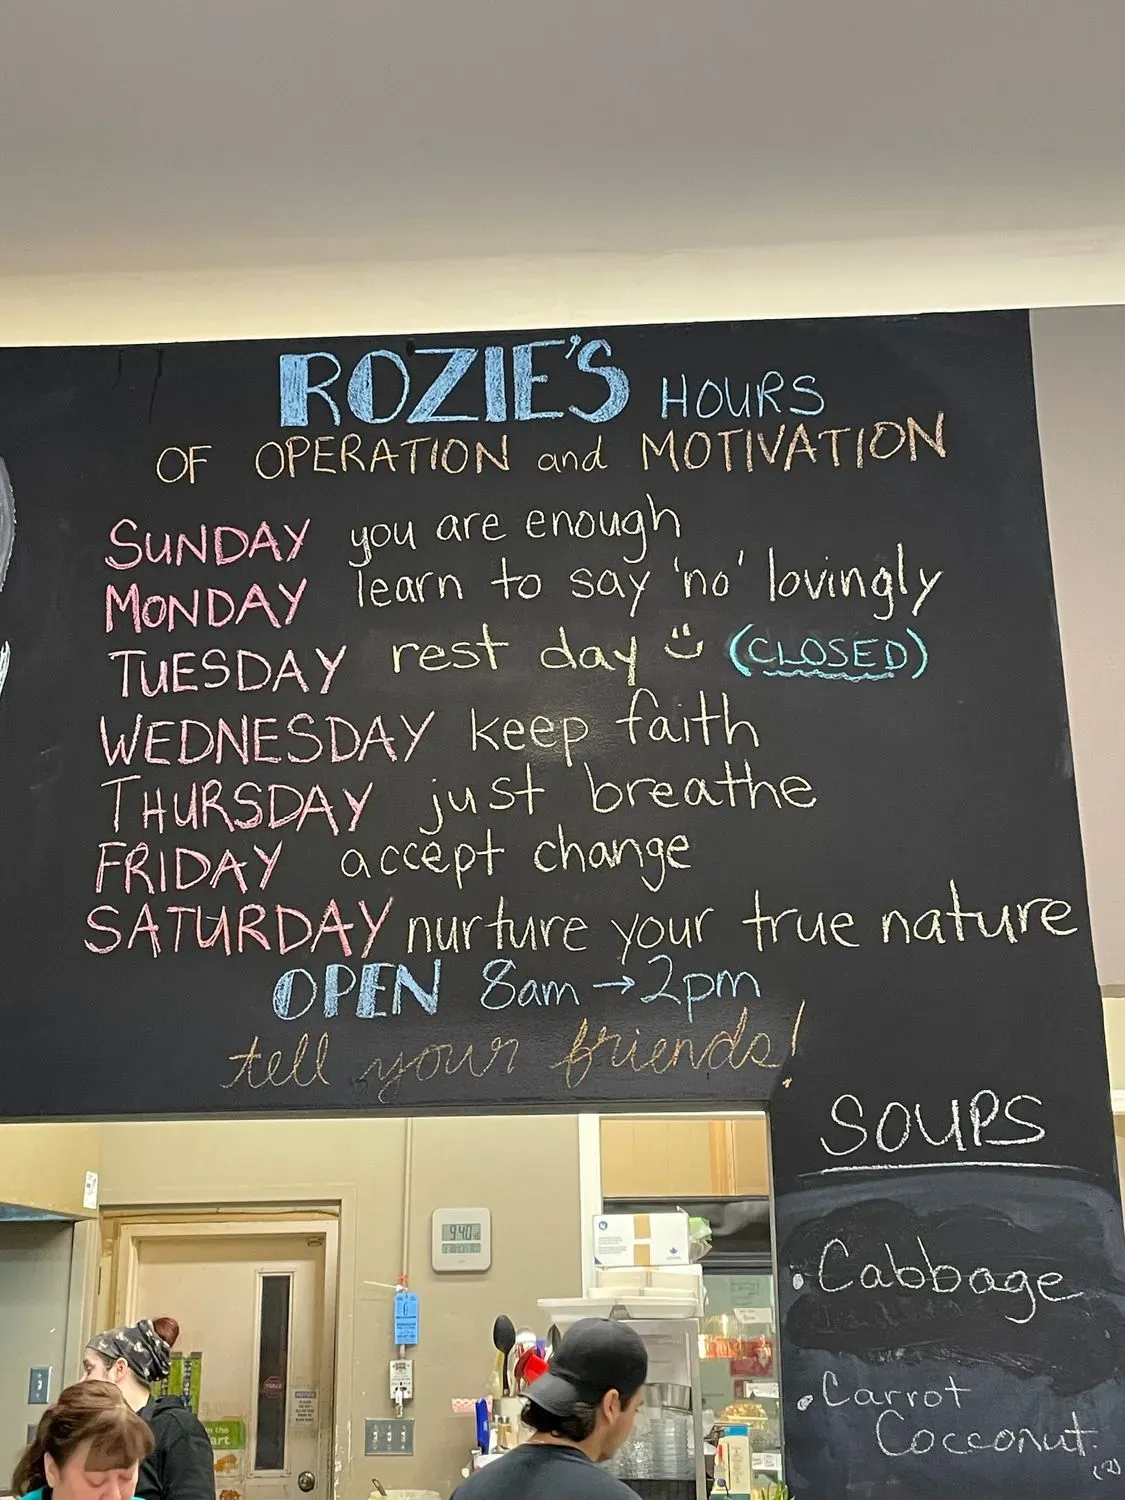 ROZIE'S HOURS
OF OPERATION and MOTIVATION
SUNDAY you are enough
MONDAY learn to say 'no' lovingly
TUESDAY rest day (CLOSED)
WEDNESDAY keep faith
THURSDAY just breathe
FRIDAY accept change
SATURDAY nurture your true nature
OPEN 8am → 2pm
tell your friends!
SOUPS
• Cabbage
• Carrot
Cocconut.
9:40